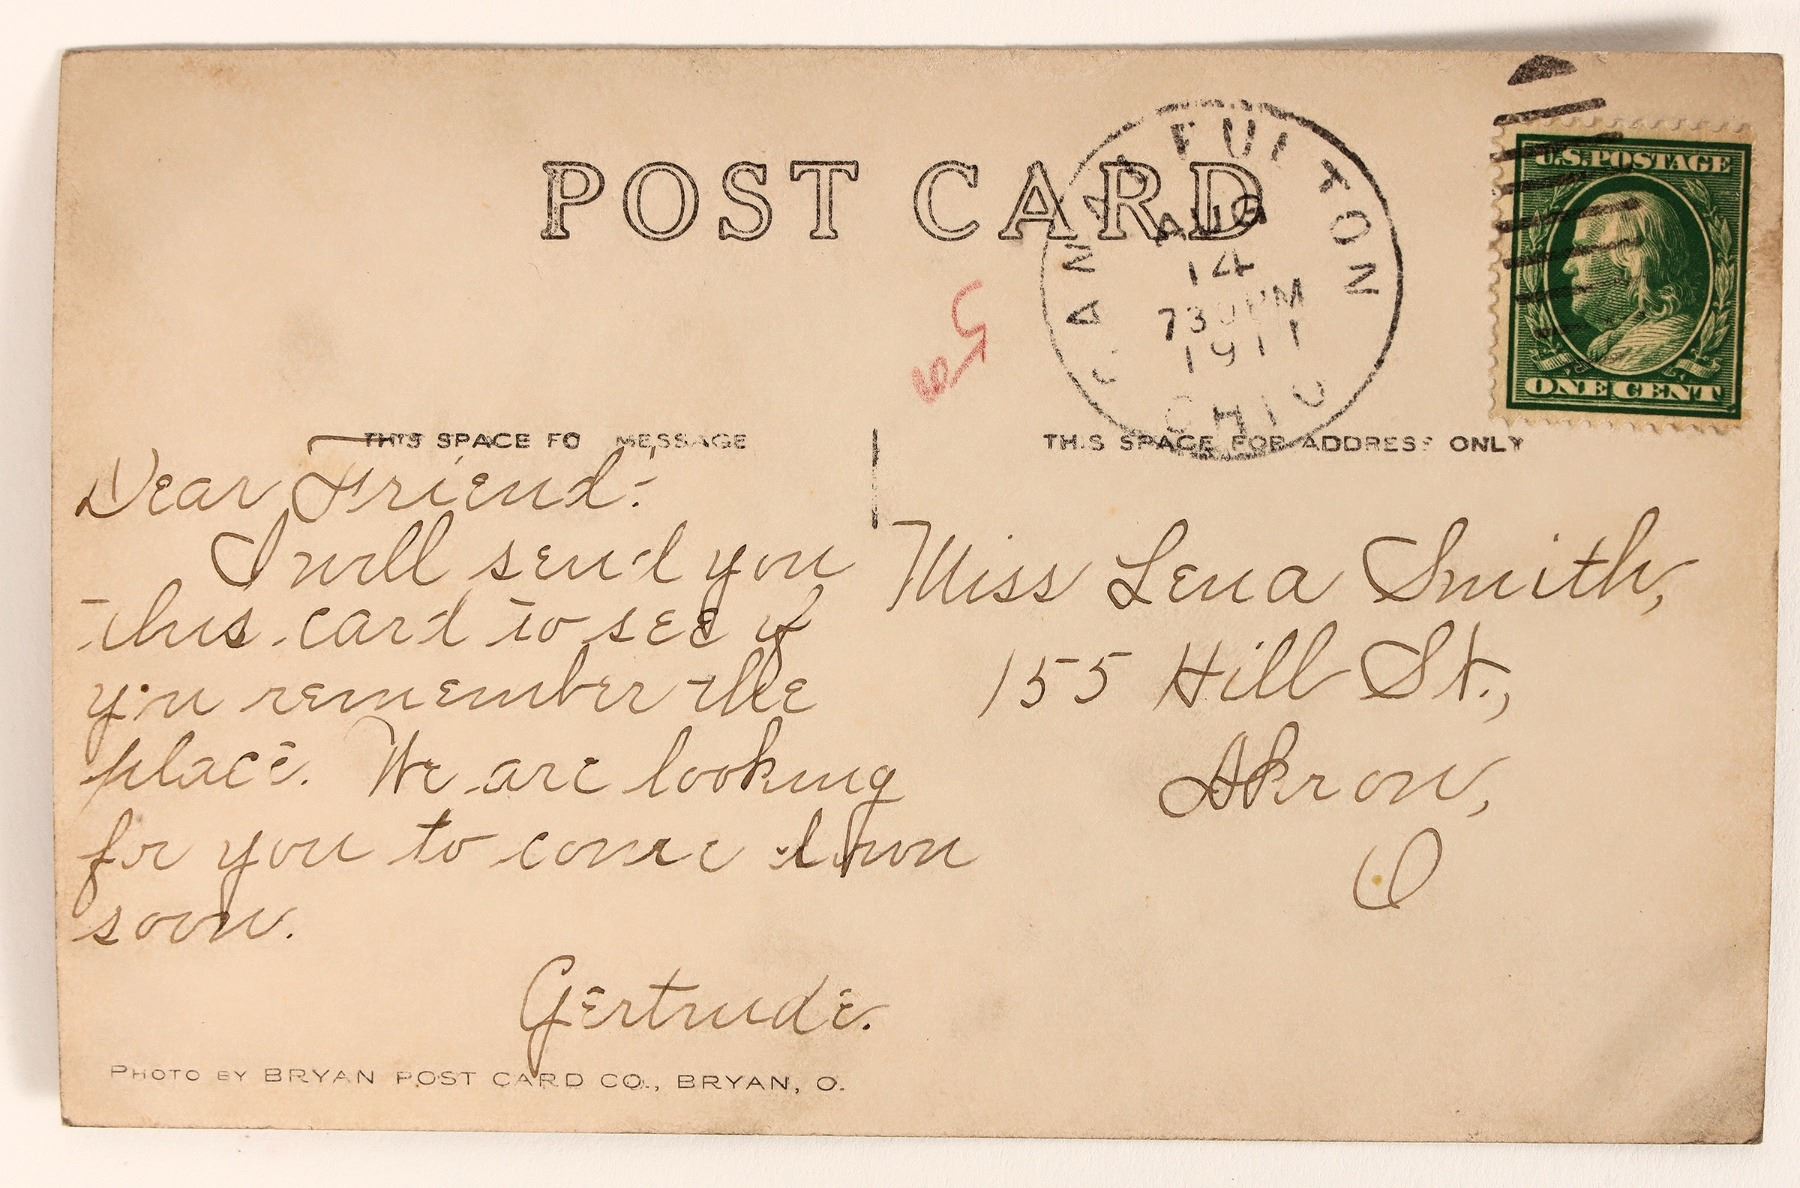 POST CARD
CANAL FULTON
AUG
14
730 PM
1911
OHIO
U.S. POSTAGE
ONE CENT
THIS SPACE FO MESSAGE
THIS SPACE FOR ADDRESS ONLY
Dear Friend:-
I will send you
this card to see if
you remember the
place. We are looking
for you to come down
soon.
Gertrude.
Miss Lena Smith,
155 Hill St.,
Akron,
O
PHOTO BY BRYAN POST CARD CO., BRYAN, O.